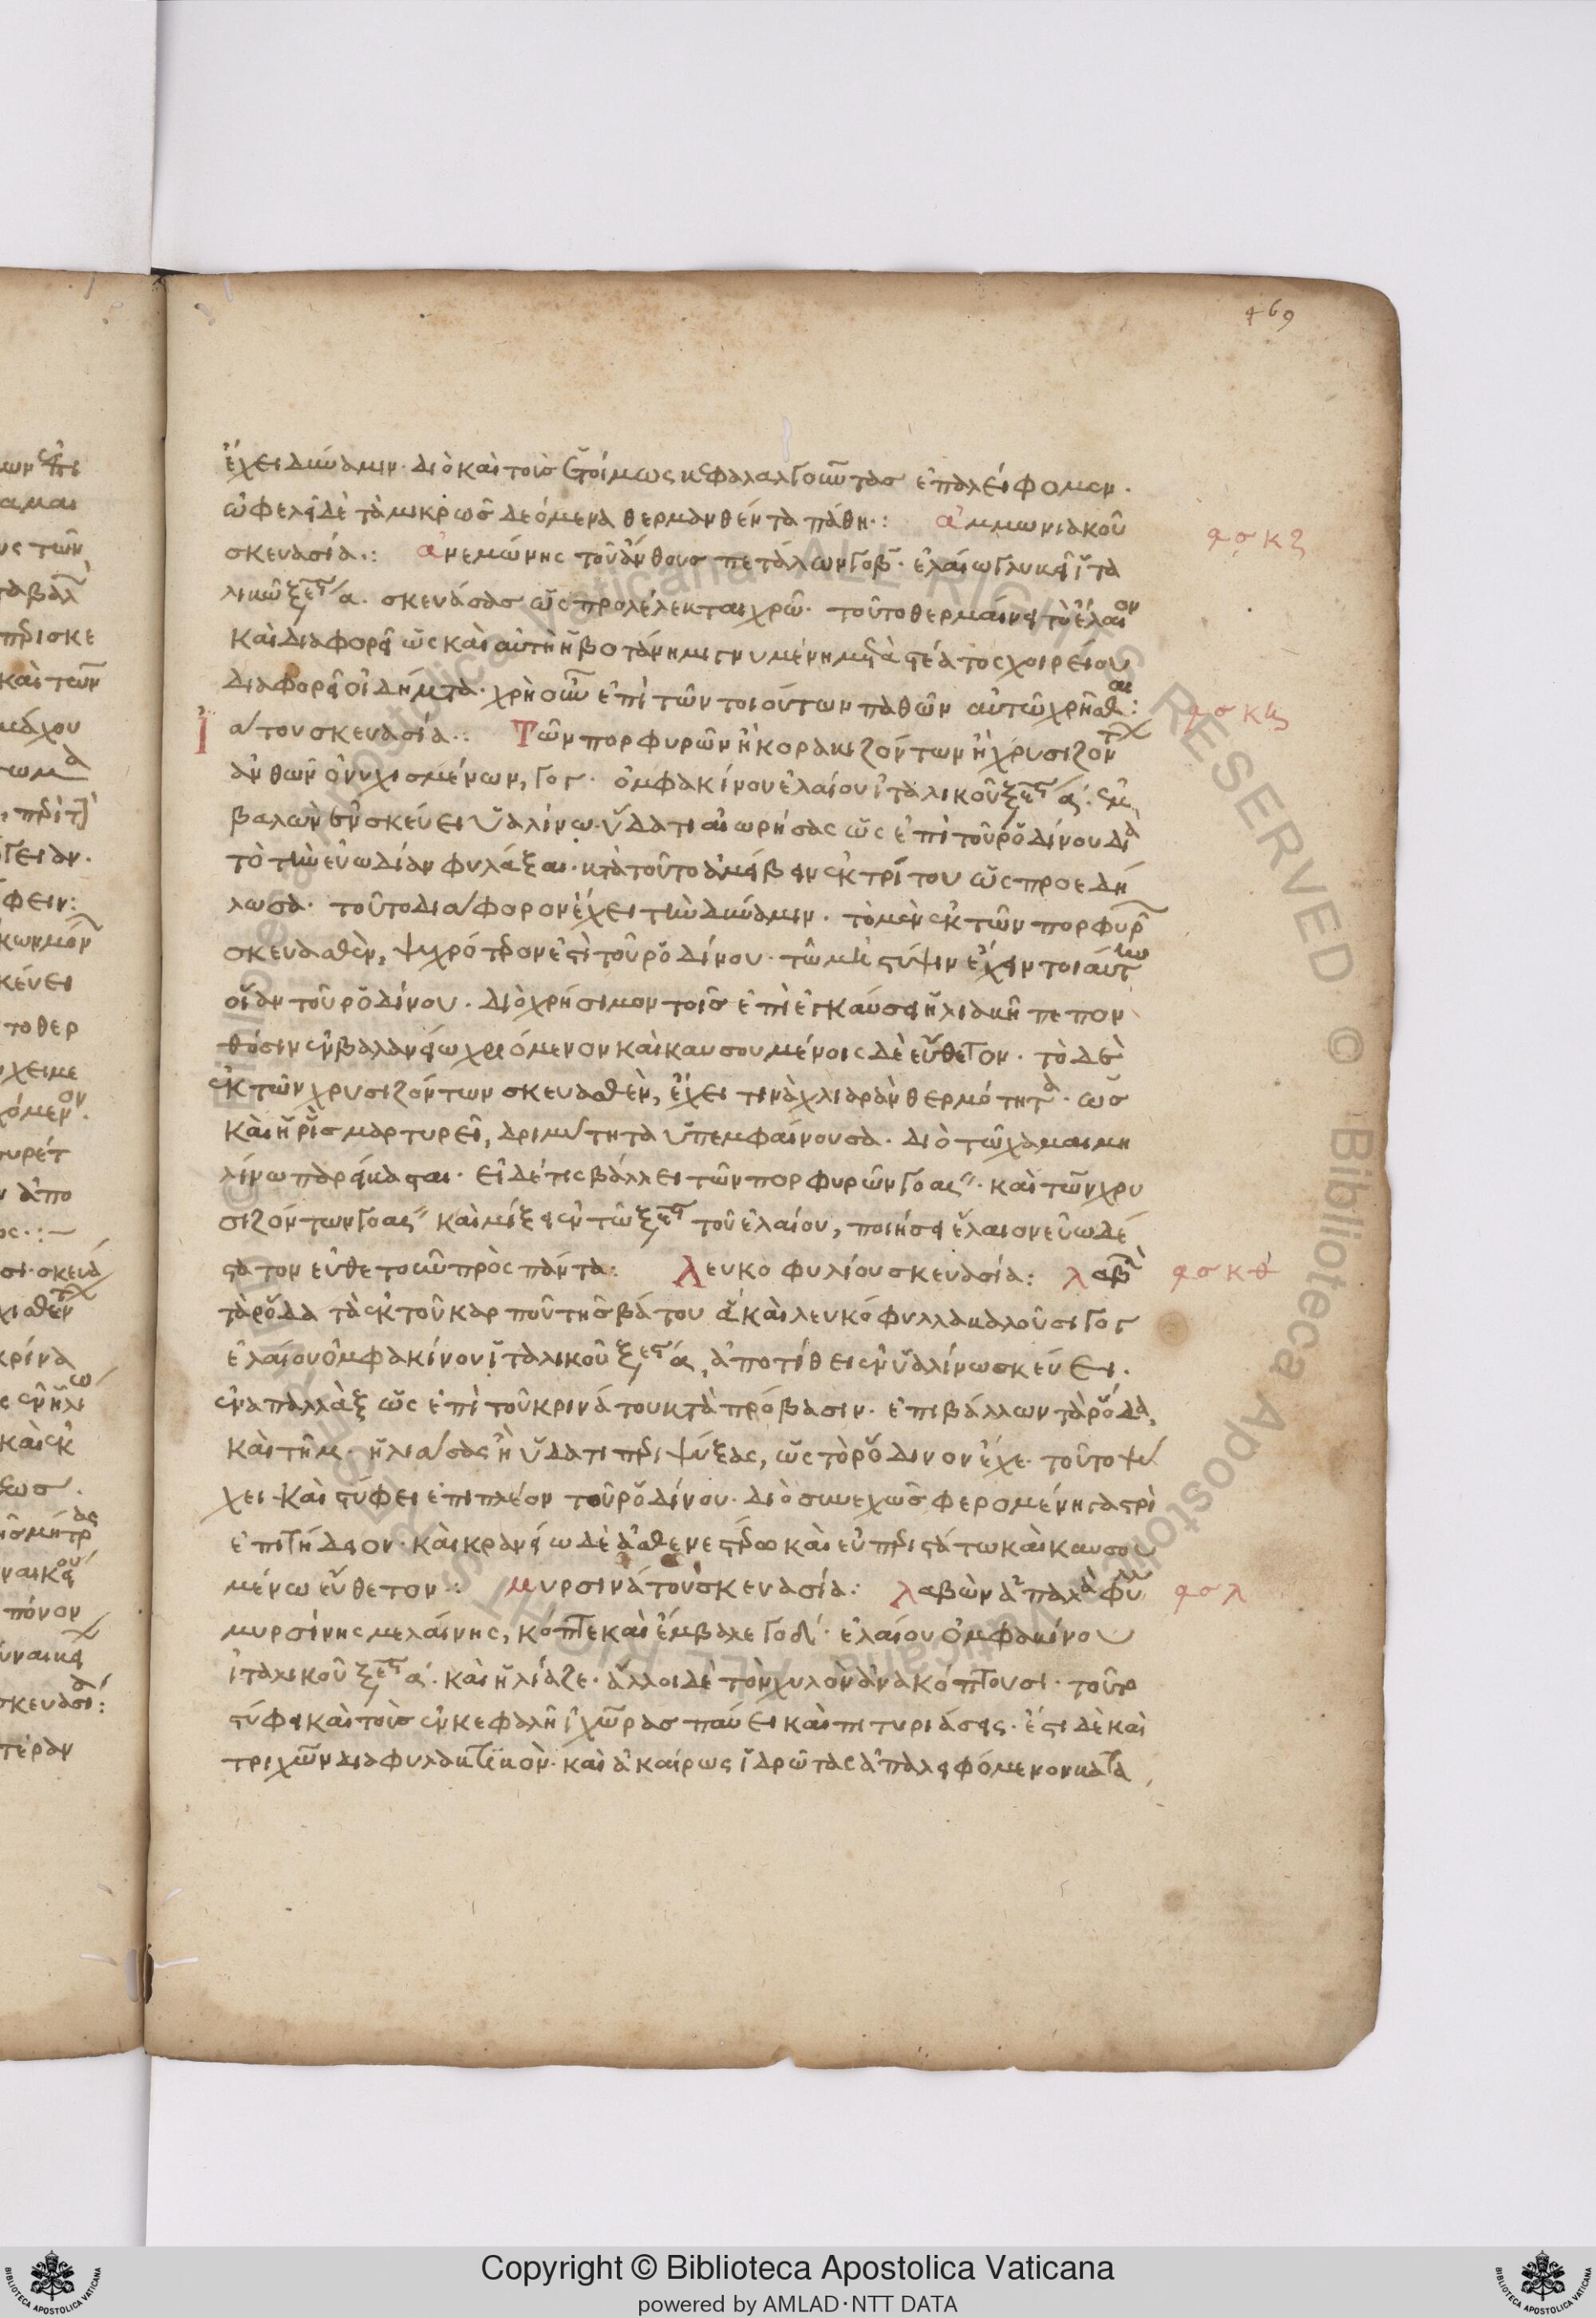 469
ἔχει δύναμιν. διὸ καὶ τοῖς ἑτοίμως κεφαλαλγοῦντας ἐπαλείφομεν.
ὠφελεῖ δὲ τὰ μικρῶς δεόμενα θερμανθέντα πάθη: ἀμμωνιακοῦ
σκευασία: ἀνεμώνης τοῦ ἄνθους πετάλων γο β. ἐλαίω γλυκεῖ ἰτα
λικῶ ξες α. σκευάσας ὡς προλέλεκται χρῶ. τοῦτο θερμαίνει τὸ ἔλαιον
καὶ διαφορεῖ ὡς καὶ αὐτὴ ἡ βοτάνη μιγνυμένη μετὰ στέατος χοιρείου
διαφορεῖ οἰδήματα. χρὴ οὖν ἐπὶ τῶν τοιούτων παθῶν αὐτῶ χρῆσθαι:
Ἰάτου σκευασία: Τῶν πορφυρῶν ἢ κορακιζόντων ἢ χρυσιζόντ
ἀνθῶν ὀνυχισμένων, γο ς. ὀμφακίνου ἐλαίου ἰταλικοῦ ξες α. ἐμ
βαλὼν ἐν σκεύει ὑαλίνω. ὕδατι αἰωρήσας ὡς ἐπὶ τοῦ ῥοδίνου διὰ
τὸ τὴν εὐωδίαν φυλάξαι. κατὰ τοῦτο ἀμείβειν ἐκ τρίτου ὡς προεδή
λωσα. τοῦτο διάφορον ἔχει τὴν δύναμιν. τὸ μὲν ἐκ τῶν πορφυρ
σκευασθὲν, ψυχρότερον ἐστὶ τοῦ ῥοδίνου. τῶ μὴ στύψιν ἔχειν τοιαύτην
οἵαν τοῦ ῥοδίνου. διὸ χρήσιμον τοῖς ἐπὶ ἐγκαύσει ἡλιακῆ πεπον
θόσιν ἐν βαλανείω χριόμενον καὶ καυσουμένοις δὲ εὔθετον. τὸ δὲ
ἐκ τῶν χρυσιζόντων σκευασθὲν, ἔχει τινὰ χλιαρὰν θερμότητα. ὡς
καὶ ἡ ῥὶς μαρτυρεῖ, δριμύτητα ὑπεμφαίνουσα. διὸ τῶ χαμαιμη
λίνω παρείκασται. εἰ δέ τις βάλλει τῶν πορφυρῶν γο ας. καὶ τῶν χρυ
σιζόντων γο ας καὶ μίξει ἐν τῶ ξες τοῦ ἐλαίου, ποιήσει ἔλαιον εὐωδέ
στατον εὔθετον πρὸς πάντα: Λευκοφυλίου σκευασία: λαβὼν
τὰ ῥόδα τὰ ἐκ τοῦ καρποῦ τῆς βάτου ἃ καὶ λευκόφυλλα καλοῦσι γο ς
ἐλαίου ὀμφακίνου ἰταλικοῦ ξες α, ἀποτίθει ἐν ὑαλίνω σκεύει.
ἐναπαλλὰξ ὡς ἐπὶ τοῦ κρινάτου κατὰ πρόβασιν. ἐπιβάλλων τὰ ῥόδα,
καὶ τῆ μ. ἡλιάσας ἢ ὕδατι περιψύξας, ὡς τὸ ῥόδινον ἔχε. τοῦτο ψύ
χει καὶ στύφει ἐπιπλέον τοῦ ῥοδίνου. διὸ συνεχῶς φερομένη γαστρὶ
ἐπιτήδειον. καὶ κρανείω δὲ ἀσθενεστέρω καὶ εὐπεριστάτω καὶ καυσου
μένω εὔθετον: μυρσινάτου σκευασία: λαβὼν ἁπαλὰ φύλλ
μυρσίνης μελαίνης, κόπτε καὶ ἔμβαλε γο δ. ἐλαίου ὀμφακίνου
ἰταλικοῦ ξες α. καὶ ἡλίαζε. ἄλλοι δὲ τὸν χυλὸν ἀνακόπτουσι. τοῦτο
στύφει καὶ τοὺς ἐν κεφαλῆ ἰχῶρας παύει καὶ πιτυριάσεις. ἔστι δὲ καὶ
τριχῶν διαφυλακτικὸν. καὶ ἀκαίρως ἱδρῶτας ἀπαλειφόμενον κατα
φσκζ
φσκη
φσκθ
φσλ
Copyright © Biblioteca Apostolica Vaticana
powered by AMLAD·NTT DATA